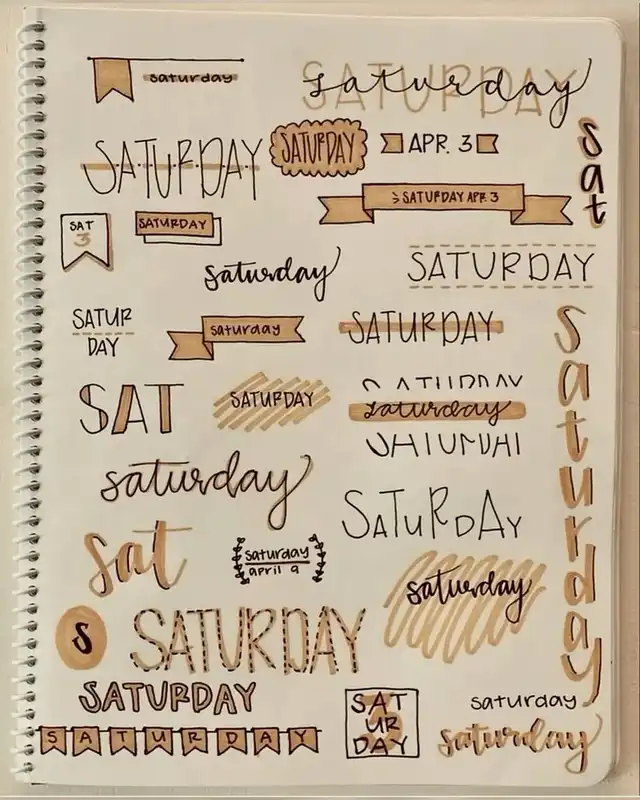 saturday
SATURDAY
saturday
SATURDAY
SATURDAY
APR. 3
sat
SATURDAY APR 3
SAT
3
SATURDAY
saturday
SATURDAY
SATUR
DAY
saturday
SATURDAY
saturday
SAT
SATURDAY
SATURDAY
saturday
saturday
SATURDAY
sat
saturday
april 9
saturday
S
SATURDAY
SATURDAY
SAT
UR
DAY
3
saturday
SATURDAY
saturday